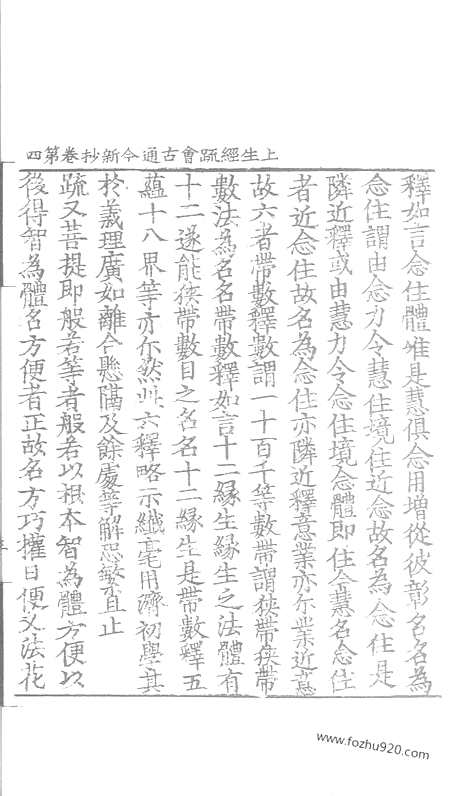 上生經疏會古通今新抄卷第四
釋如言念住體唯是慧俱念用增從彼彰名名為
念住謂由念力令慧住境住近念故名為念住是
隣近釋或由慧力令念住境念體即住令慧名念住
者近念住故名為念住亦隣近釋意業亦尒業近意
故六者帶數釋數謂一十百千等數帶謂挾帶挾帶
數法為名名帶數釋如言十二緣生緣生之法體有
十二遂能挾帶數目之名名十二緣生是帶數釋五
蘊十八界等亦尒然此六釋略示纖毫用濟初學其
於義理廣如離合懸隔及餘處等解恐繁且止
疏又菩提即般若等者般若以根本智為體方便以
後得智為體名方便者正故名方巧權曰便又法花
www.fozhu920.com